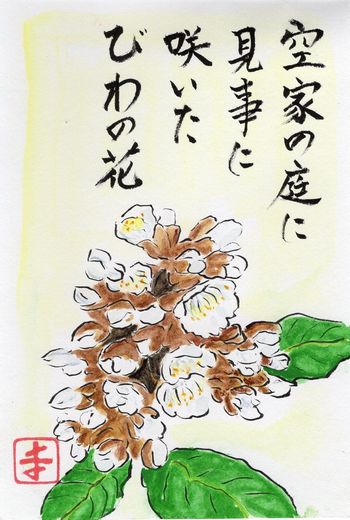 空家の庭に
見事に
咲いた
びわの花